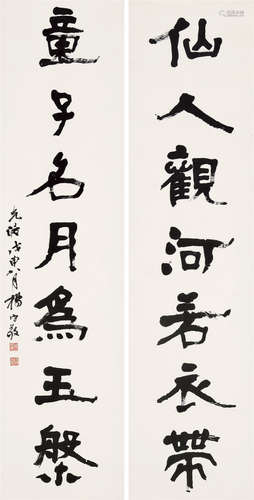 仙人觀河若衣帶
童子名月為玉槃
戊申八月楊守敬